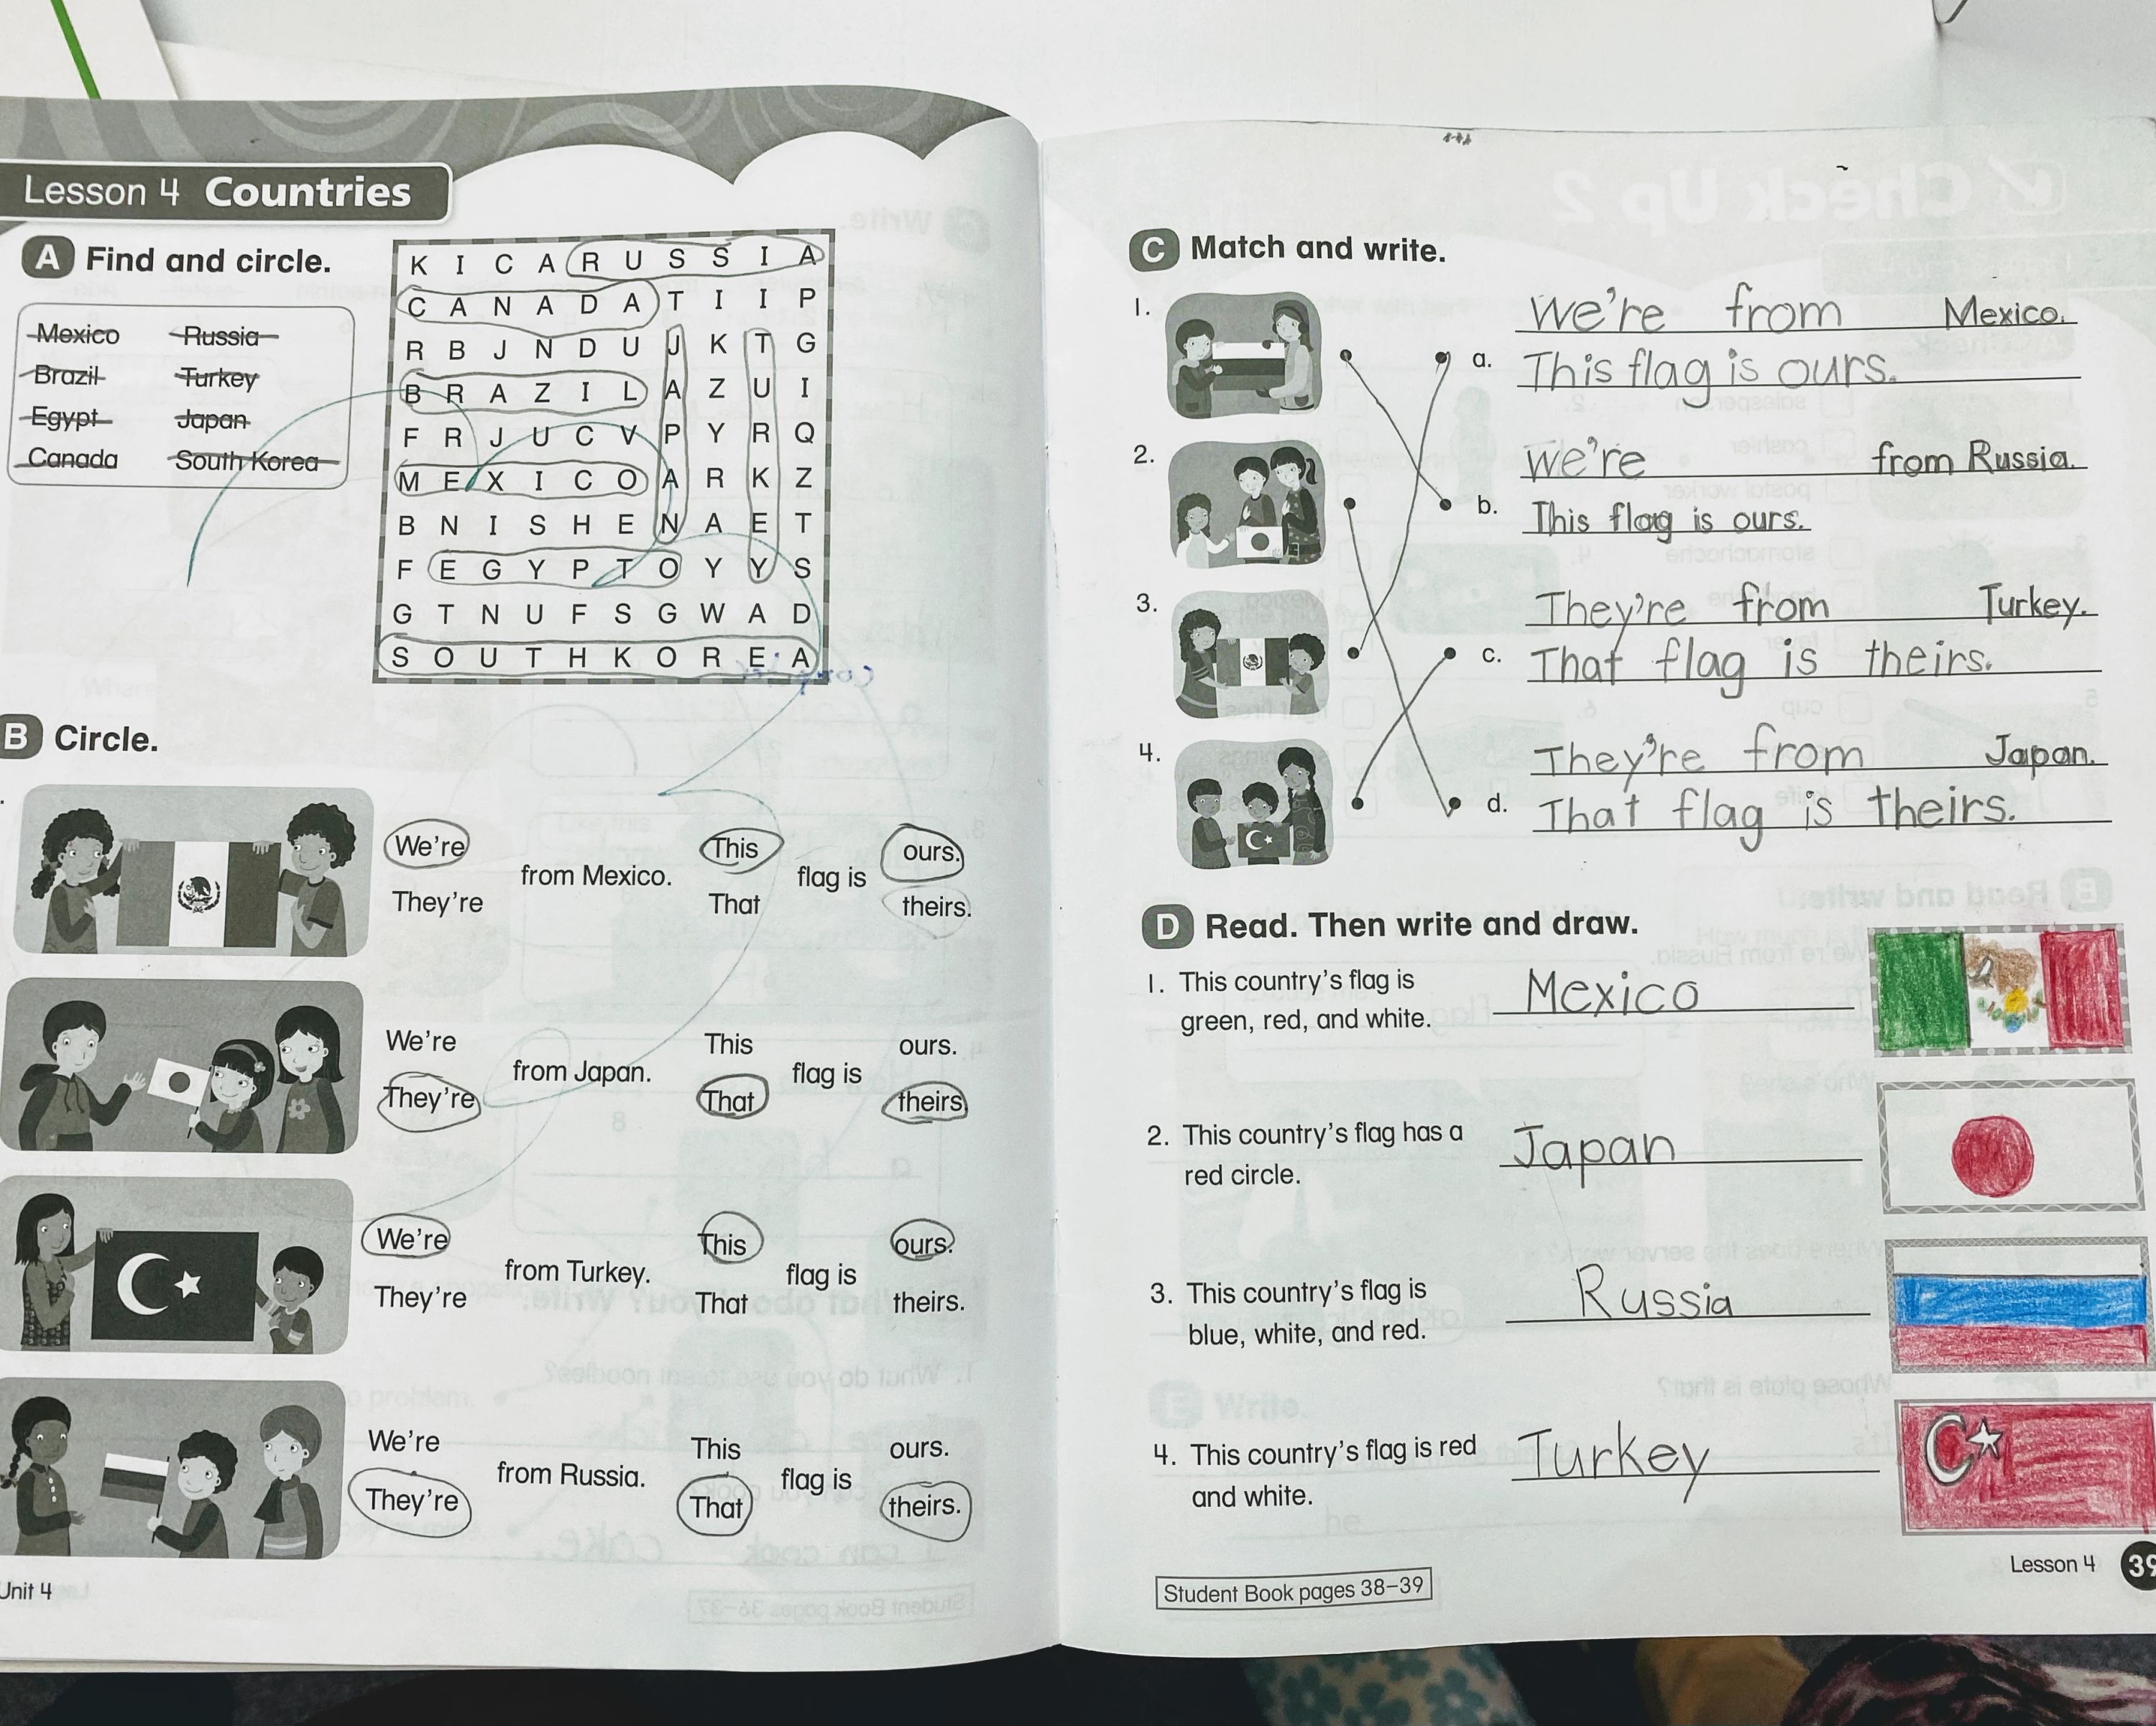 Lesson 4 Countries
A Find and circle.
Mexico Russia
Brazil Turkey
Egypt Japan
Canada South Korea
K I C A R U S S I A
C A N A D A T I I P
R B J N D U J K T G
B R A Z I L A Z U I
F R J U C V P Y R Q
M E X I C O A R K Z
B N I S H E N A E T
F E G Y P T O Y Y S
G T N U F S G W A D
S O U T H K O R E A
B Circle.
We're This ours.
from Mexico. flag is
They're That theirs.
We're This ours.
from Japan. flag is
They're That theirs.
We're This ours.
from Turkey. flag is
They're That theirs.
We're This ours.
from Russia. flag is
They're That theirs.
Unit 4
C Match and write.
1.
a. We're from Mexico.
This flag is ours.
2.
b. we're from Russia.
This flag is ours.
3.
c. They're from Turkey.
That flag is theirs.
4.
d. They're from Japan.
That flag is theirs.
D Read. Then write and draw.
1. This country's flag is
green, red, and white. Mexico
2. This country's flag has a
red circle. Japan
3. This country's flag is
blue, white, and red. Russia
4. This country's flag is red
and white. Turkey
Student Book pages 38–39
Lesson 4 39